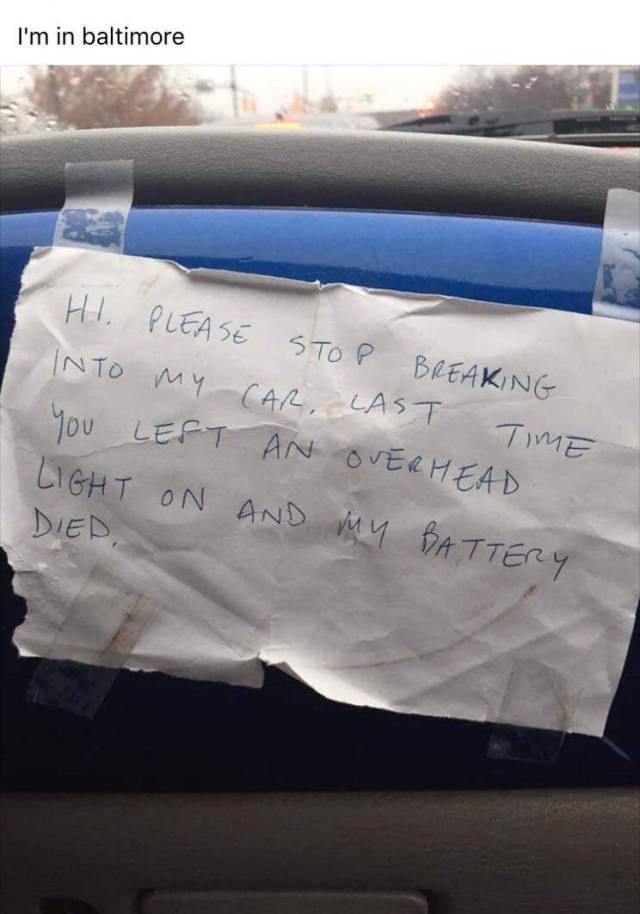 I'm in baltimore
HI. PLEASE STOP BREAKING
INTO MY CAR. LAST TIME
YOU LEFT AN OVERHEAD
LIGHT ON AND MY BATTERY
DIED.